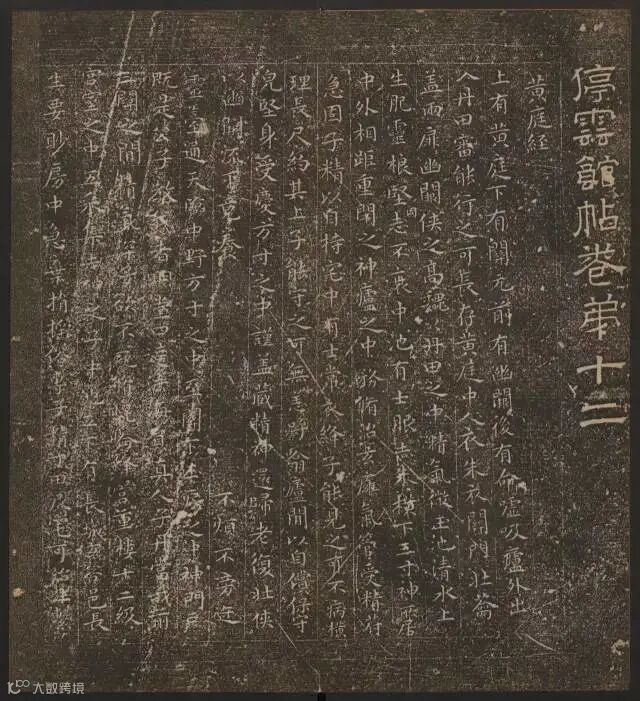 停雲館帖卷弟十二
黃庭經
上有黃庭下有關元前有幽闕後有命噓吸廬外出
入丹田審能行之可長存黃庭中人衣朱衣關門壯籥
蓋兩扉幽闕俠之高魏丹田之中精氣微玉池清水上
生肥靈根堅志不衰中池有士服赤朱橫下三寸神所居
中外相距重閉之神廬之中務脩治玄廱氣管受精符
急固子精以自持宅中有士常衣絳子能見之可不病橫
理長尺約其上子能守之可無恙呼噏廬間以自償保守
完堅身受慶方寸之中謹蓋藏精神還歸老復壯俠
以幽闕流下竟 不煩不旁迕
靈臺通天臨中野方寸之中至關下玉房之中神門戶
既是公子教我者明堂四達法海員真人子丹當我前
三關之間精氣深子欲不死脩崑崙絳宮重樓十二級
宮室之中五采集赤神之子中池立下有長城玄谷邑長
生要眇房中急棄捐搖俗專子精寸田尺宅可治生
大数跨境